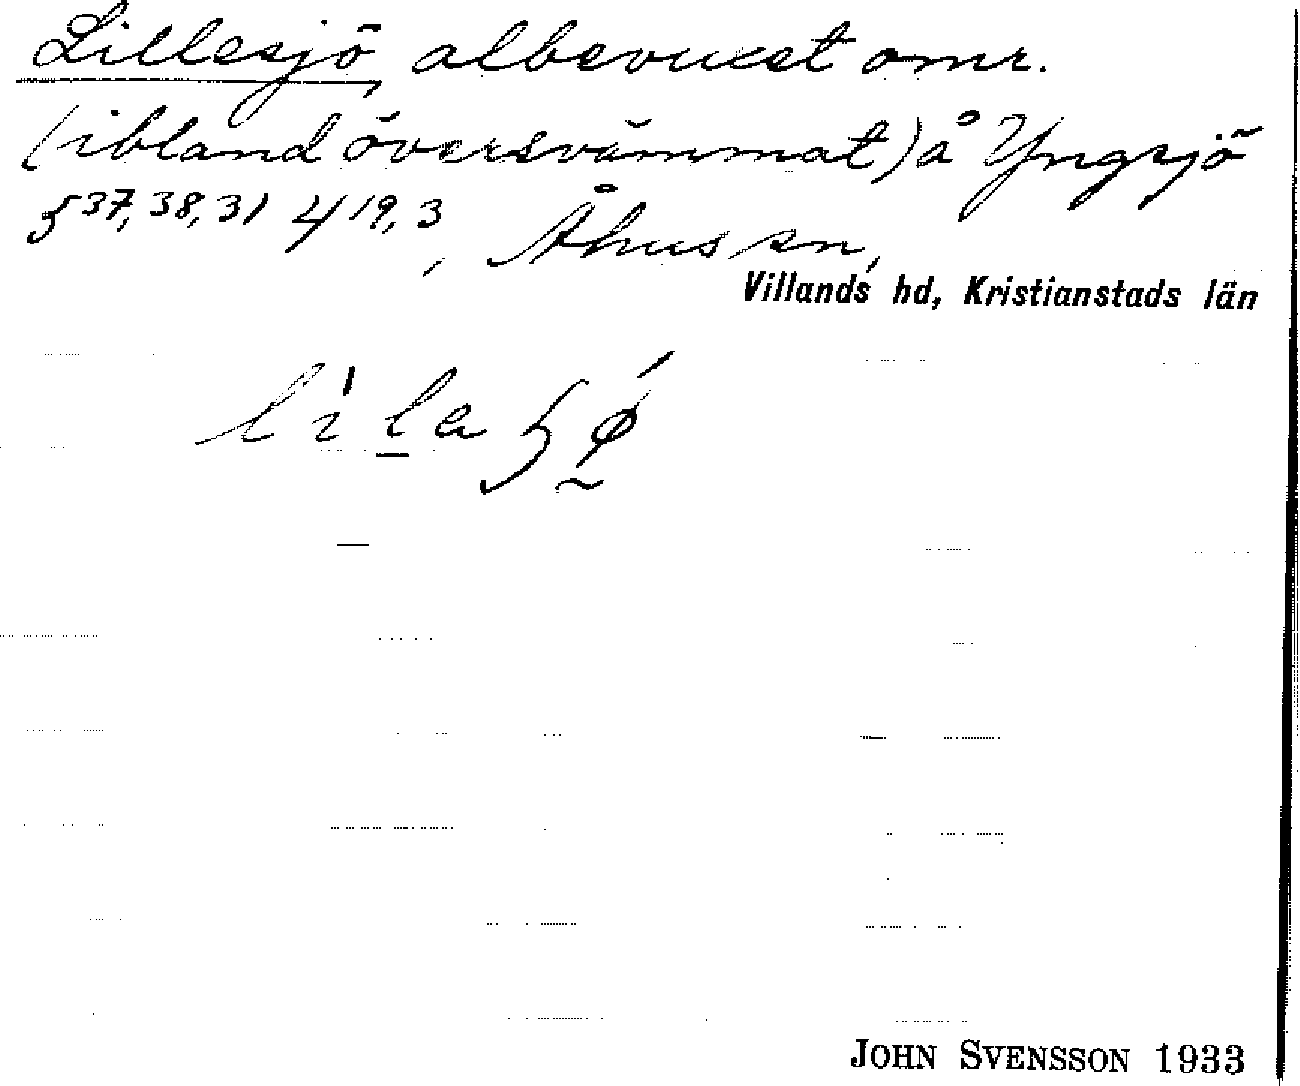 Lillesjö, albevuxet omr.
(ibland översvämmat) å Yngsjö
5 37, 38, 31 4 19, 3, Åhus sn,
Villands hd, Kristianstads län
JOHN SVENSSON 1933